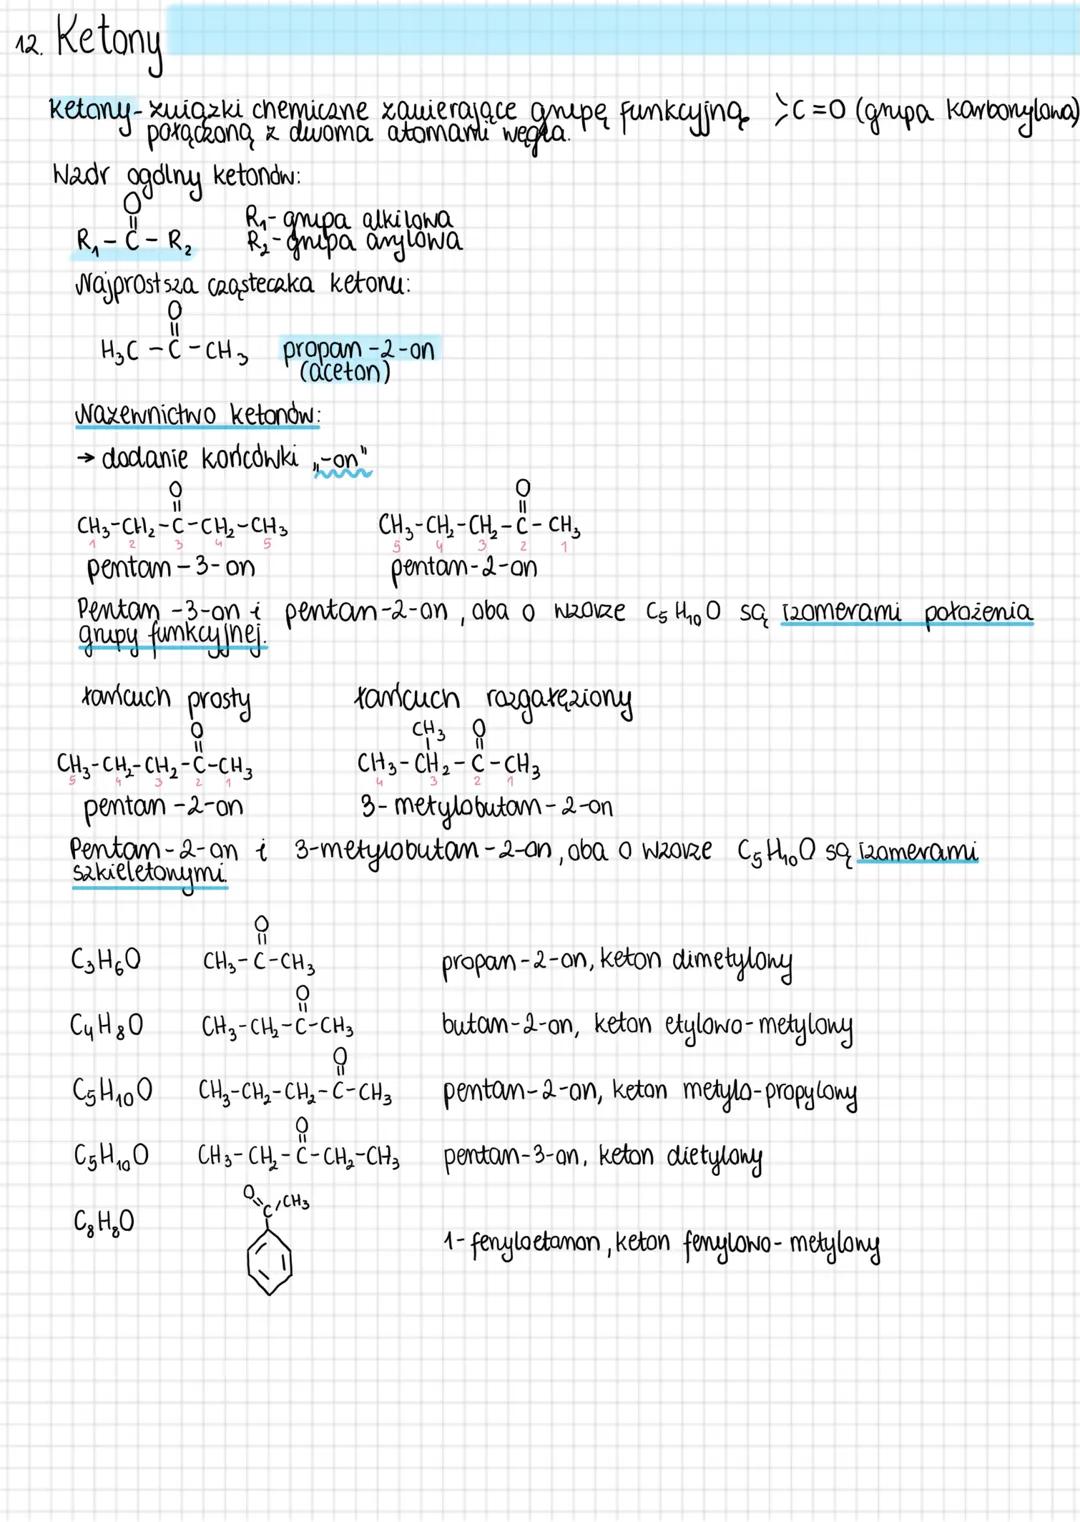 12. Ketony
Ketony - związki chemiczne zawierające grupę funkcyjną >C=O (grupa karbonylowa)
połączoną z dwoma atomami węgla.
Wzór ogólny ketonów:
O
R₁ - C - R₂
R₁ - grupa alkilowa
R₂ - grupa arylowa
Najprostsza cząsteczka ketonu:
O
H₃C - C - CH₃ propan-2-on
(aceton)
Nazewnictwo ketonów:
→ dodanie końcówki „-on"
O O
CH₃-CH₂-C-CH₂-CH₃ CH₃-CH₂-CH₂-C-CH₃
1 2 3 4 5 5 4 3 2 1
pentan-3-on pentan-2-on
Pentan-3-on i pentan-2-on, oba o wzorze C₅H₁₀O są izomerami położenia
grupy funkcyjnej.
łańcuch prosty łańcuch rozgałęziony
O CH₃ O
CH₃-CH₂-CH₂-C-CH₃ CH₃-CH₂-C-CH₃
5 4 3 2 1 4 3 2 1
pentan-2-on 3-metylobutan-2-on
Pentan-2-on i 3-metylobutan-2-on, oba o wzorze C₅H₁₀O są izomerami
szkieletonymi.
O
C₃H₆O CH₃-C-CH₃ propan-2-on, keton dimetylony
O
C₄H₈O CH₃-CH₂-C-CH₃ butan-2-on, keton etylowo-metylowy
O
C₅H₁₀O CH₃-CH₂-CH₂-C-CH₃ pentan-2-on, keton metylo-propylowy
O
C₅H₁₀O CH₃-CH₂-C-CH₂-CH₃ pentan-3-on, keton dietylowy
O C CH₃
C₈H₈O
1-fenyloetanon, keton fenylowo-metylowy